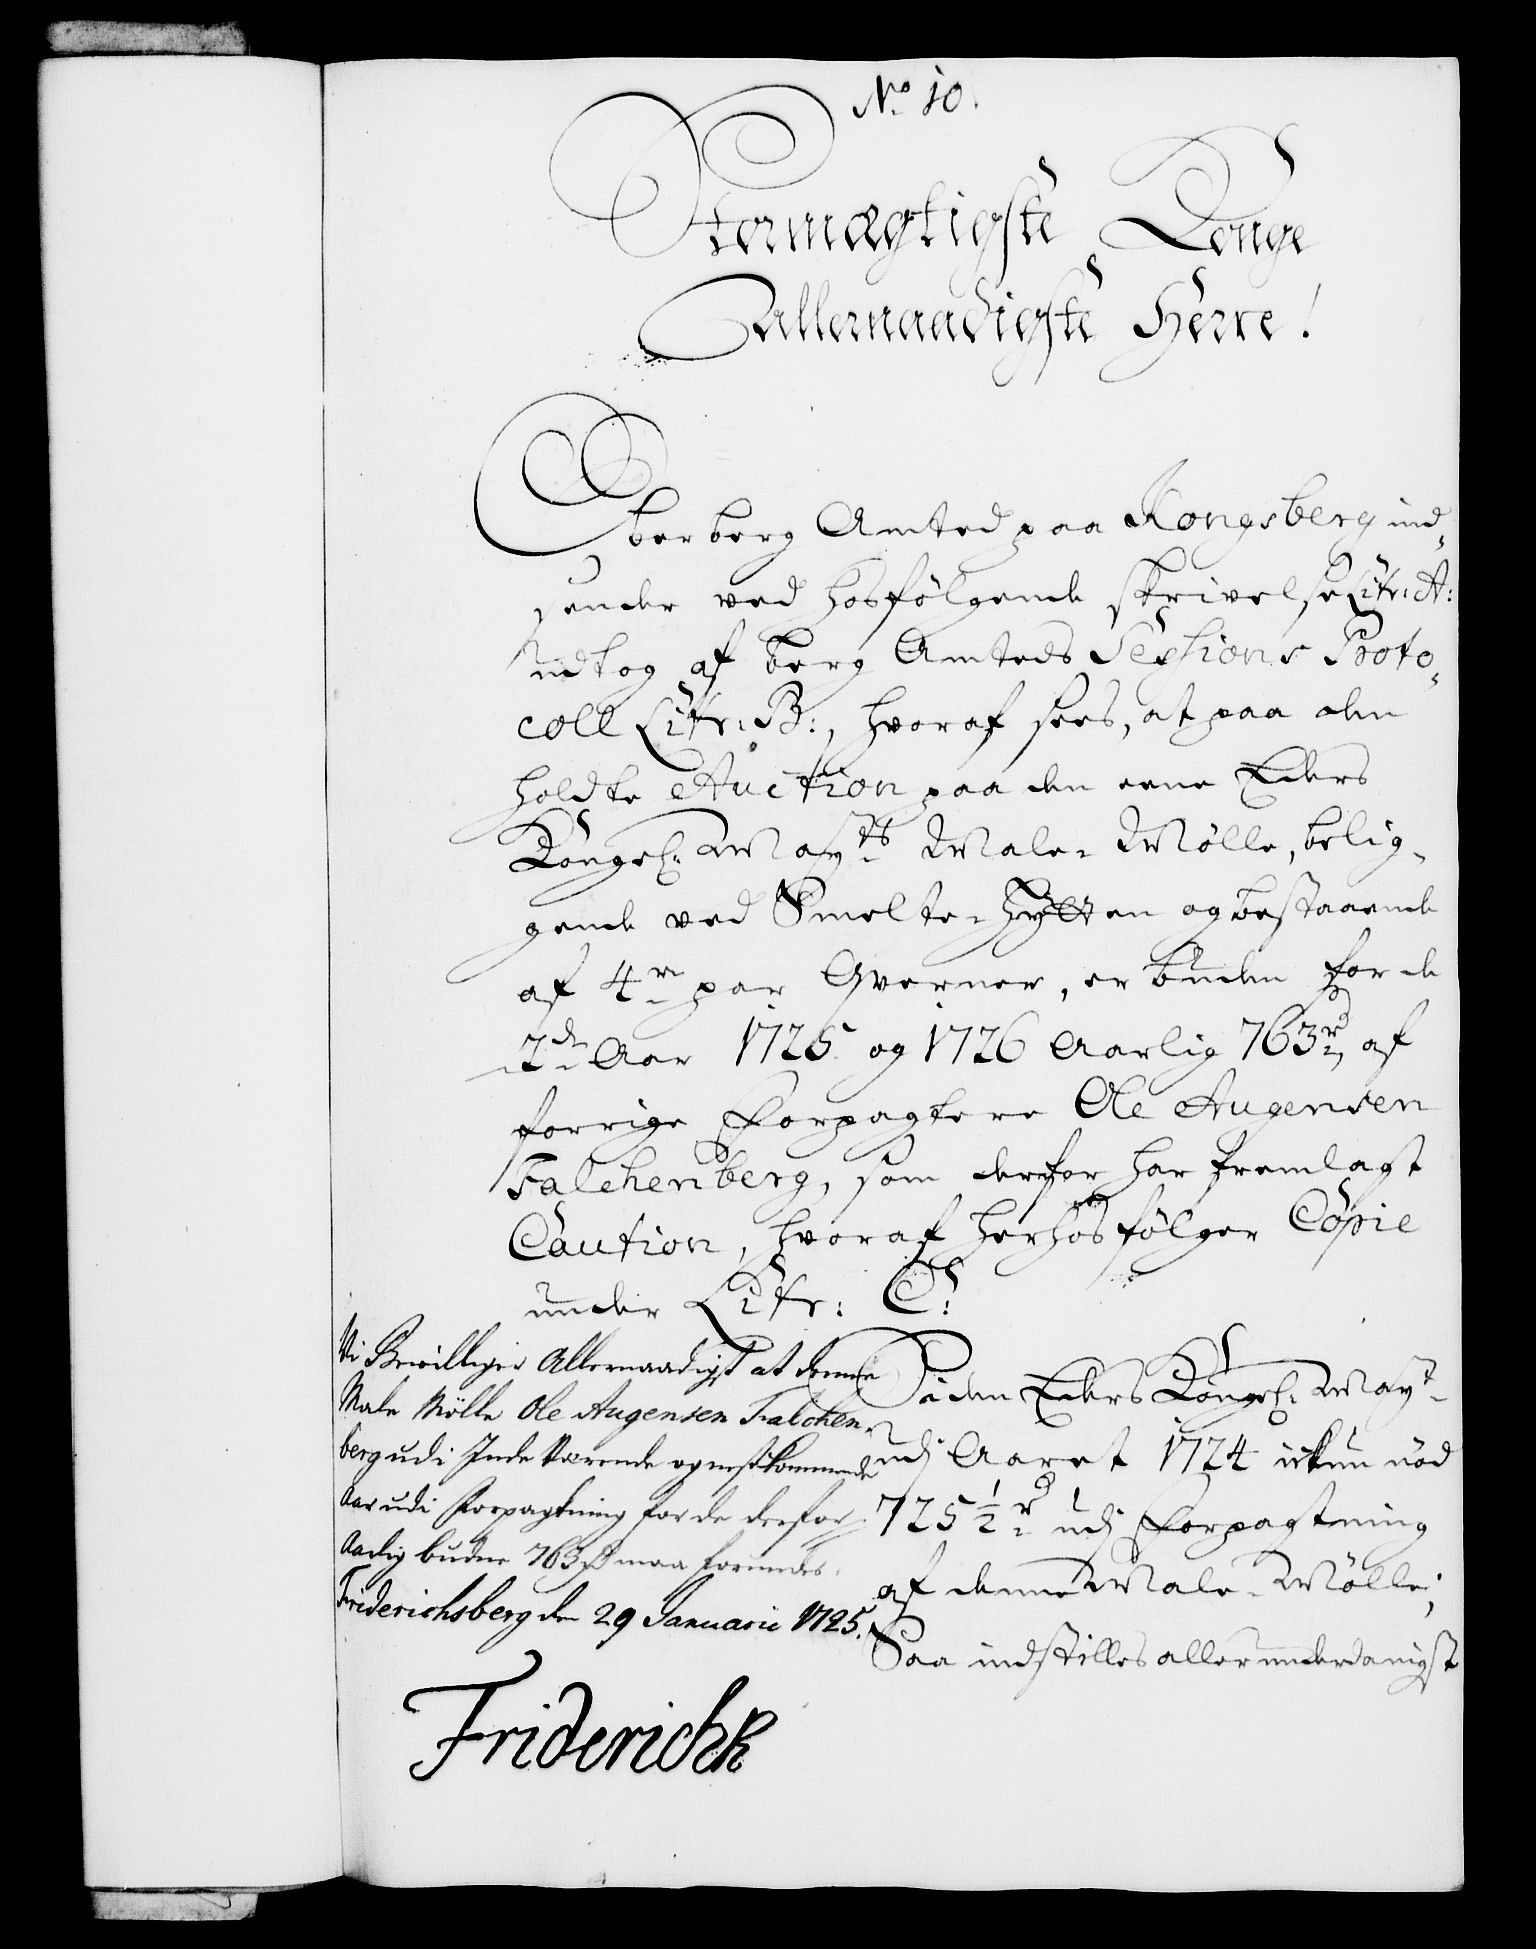 No 10.
Stormægtigste Konge
Allernaadigste Herre!
Ober berg Amted paa Kongsberg ind-
sender ved hosfølgende skrivelse Litr: A:
udtog af berg Amteds Sessions Proto-
coll Litr: B:, hvoraf sees, at paa den
holdte Auction paa den eene Eders
Kongel: May:ts Male-Mølle, belig-
gende ved Smelte-hytten og bestaaende
af 4re par Qverner, er buden for de
2de Aar 1725 og 1726 Aarlig 763 rd, af
forrige Forpagtere Ole Augensen
Falchenberg, som derfor har fremlagt
Caution, hvoraf herhos følger Copie
under Litr: C:
Siden Eders Kongel: May:t
udj Aaret 1724 ickun nød
725 1/2 rd udj Forpagtning
af denne Male-Mølle;
Saa indstilles allerunderdanigst
Vi Bevilliger Allernaadigst at denne
Male Mølle Ole Augensen Falchen-
berg udi Inde værende og nestkommende
Aar udi Forpagtning for de derfor
Aarlig budne 763 rd maa forundes.
Friderichsberg den 29 Januarii 1725.
Friderich R